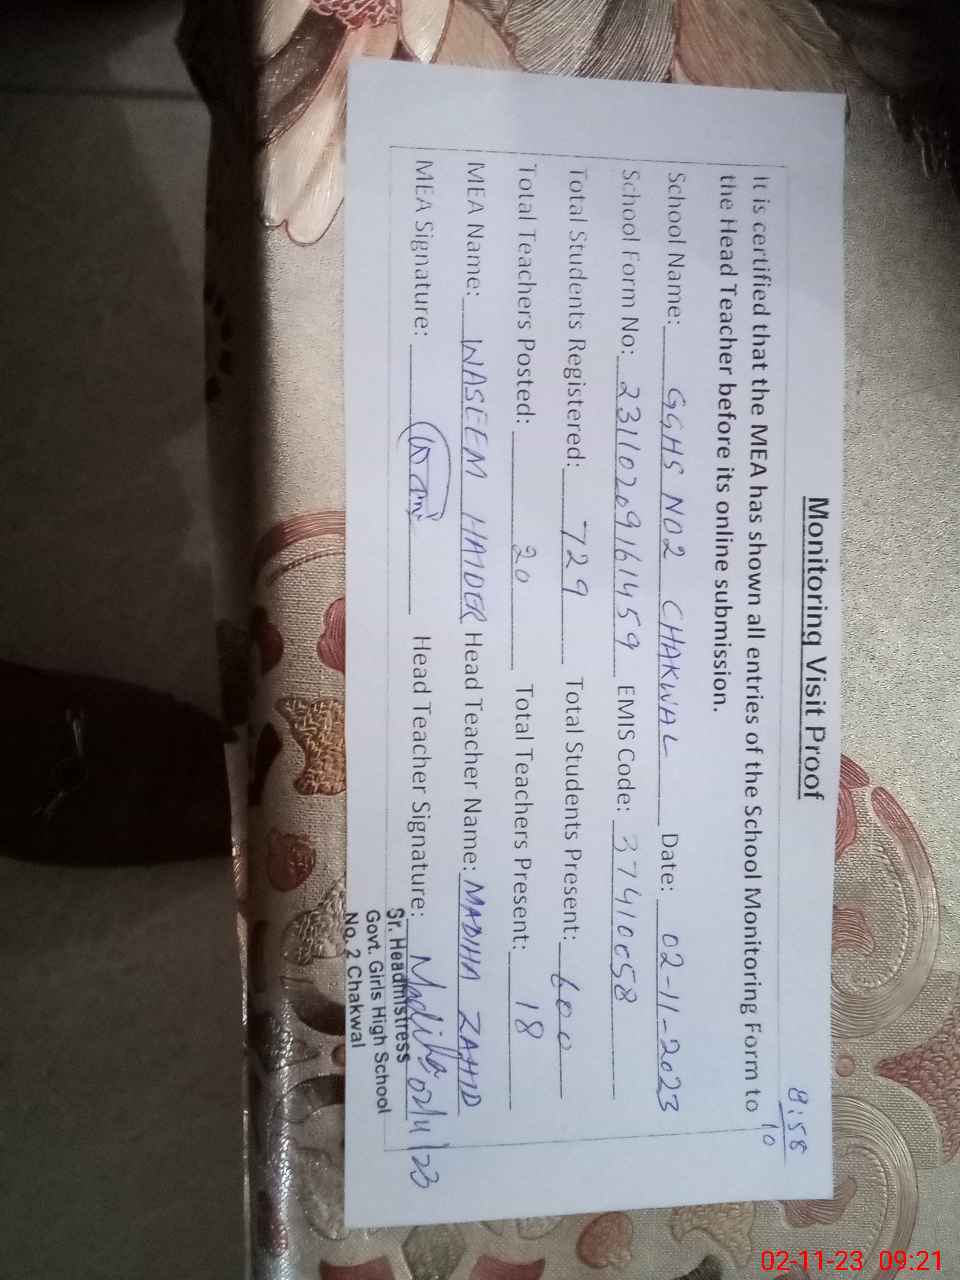 8:58
10
Monitoring Visit Proof
It is certified that the MEA has shown all entries of the School Monitoring Form to
the Head Teacher before its online submission.
School Name: GGHS NO2 CHAKWAL Date: 02-11-2023
School Form No: 23110209161459 EMIS Code: 37410058
Total Students Registered: 729 Total Students Present: 600
Total Teachers Posted: 20 Total Teachers Present: 18
MEA Name: WASEEM HAIDER Head Teacher Name: MADIHA ZAHID
MEA Signature: Head Teacher Signature: Madiha 02/11/23
Sr. Headmistress
Govt. Girls High School
No. 2 Chakwal
02-11-23 09:21